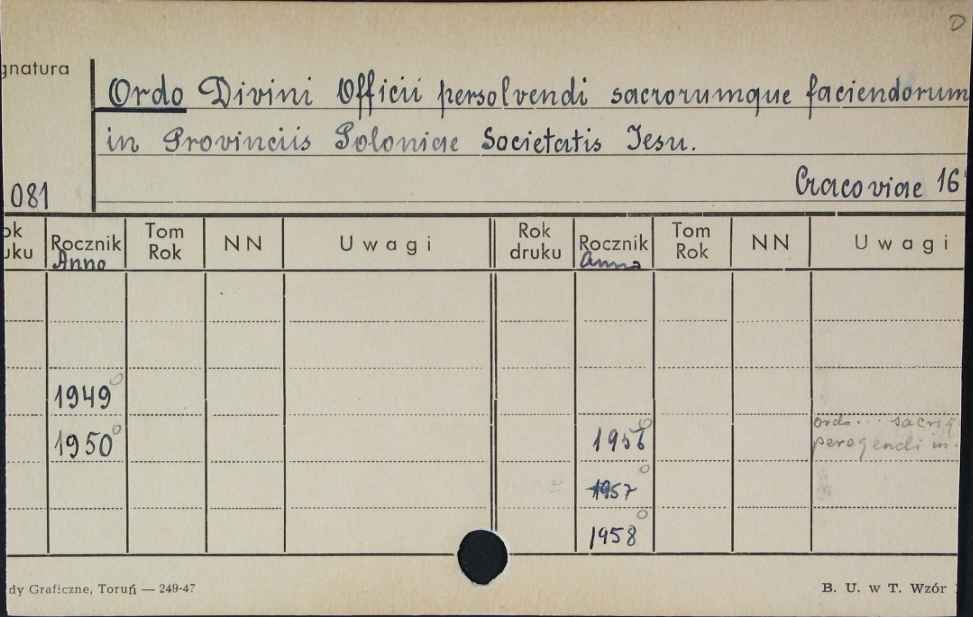 D
gnatura
Ordo Divini Officii persolvendi sacrorumque faciendorum
in Provinciis Poloniae Societatis Jesu.
081
Cracoviae 16
ok Rocznik Tom NN Uwagi Rok Rocznik Tom NN Uwagi
uku Anno Rok druku Anno Rok
1949
1950
1956
ordo... sacriq
peragendi in.
1957
1958
dy Graficzne, Toruń — 249-47
B. U. w T. Wzór